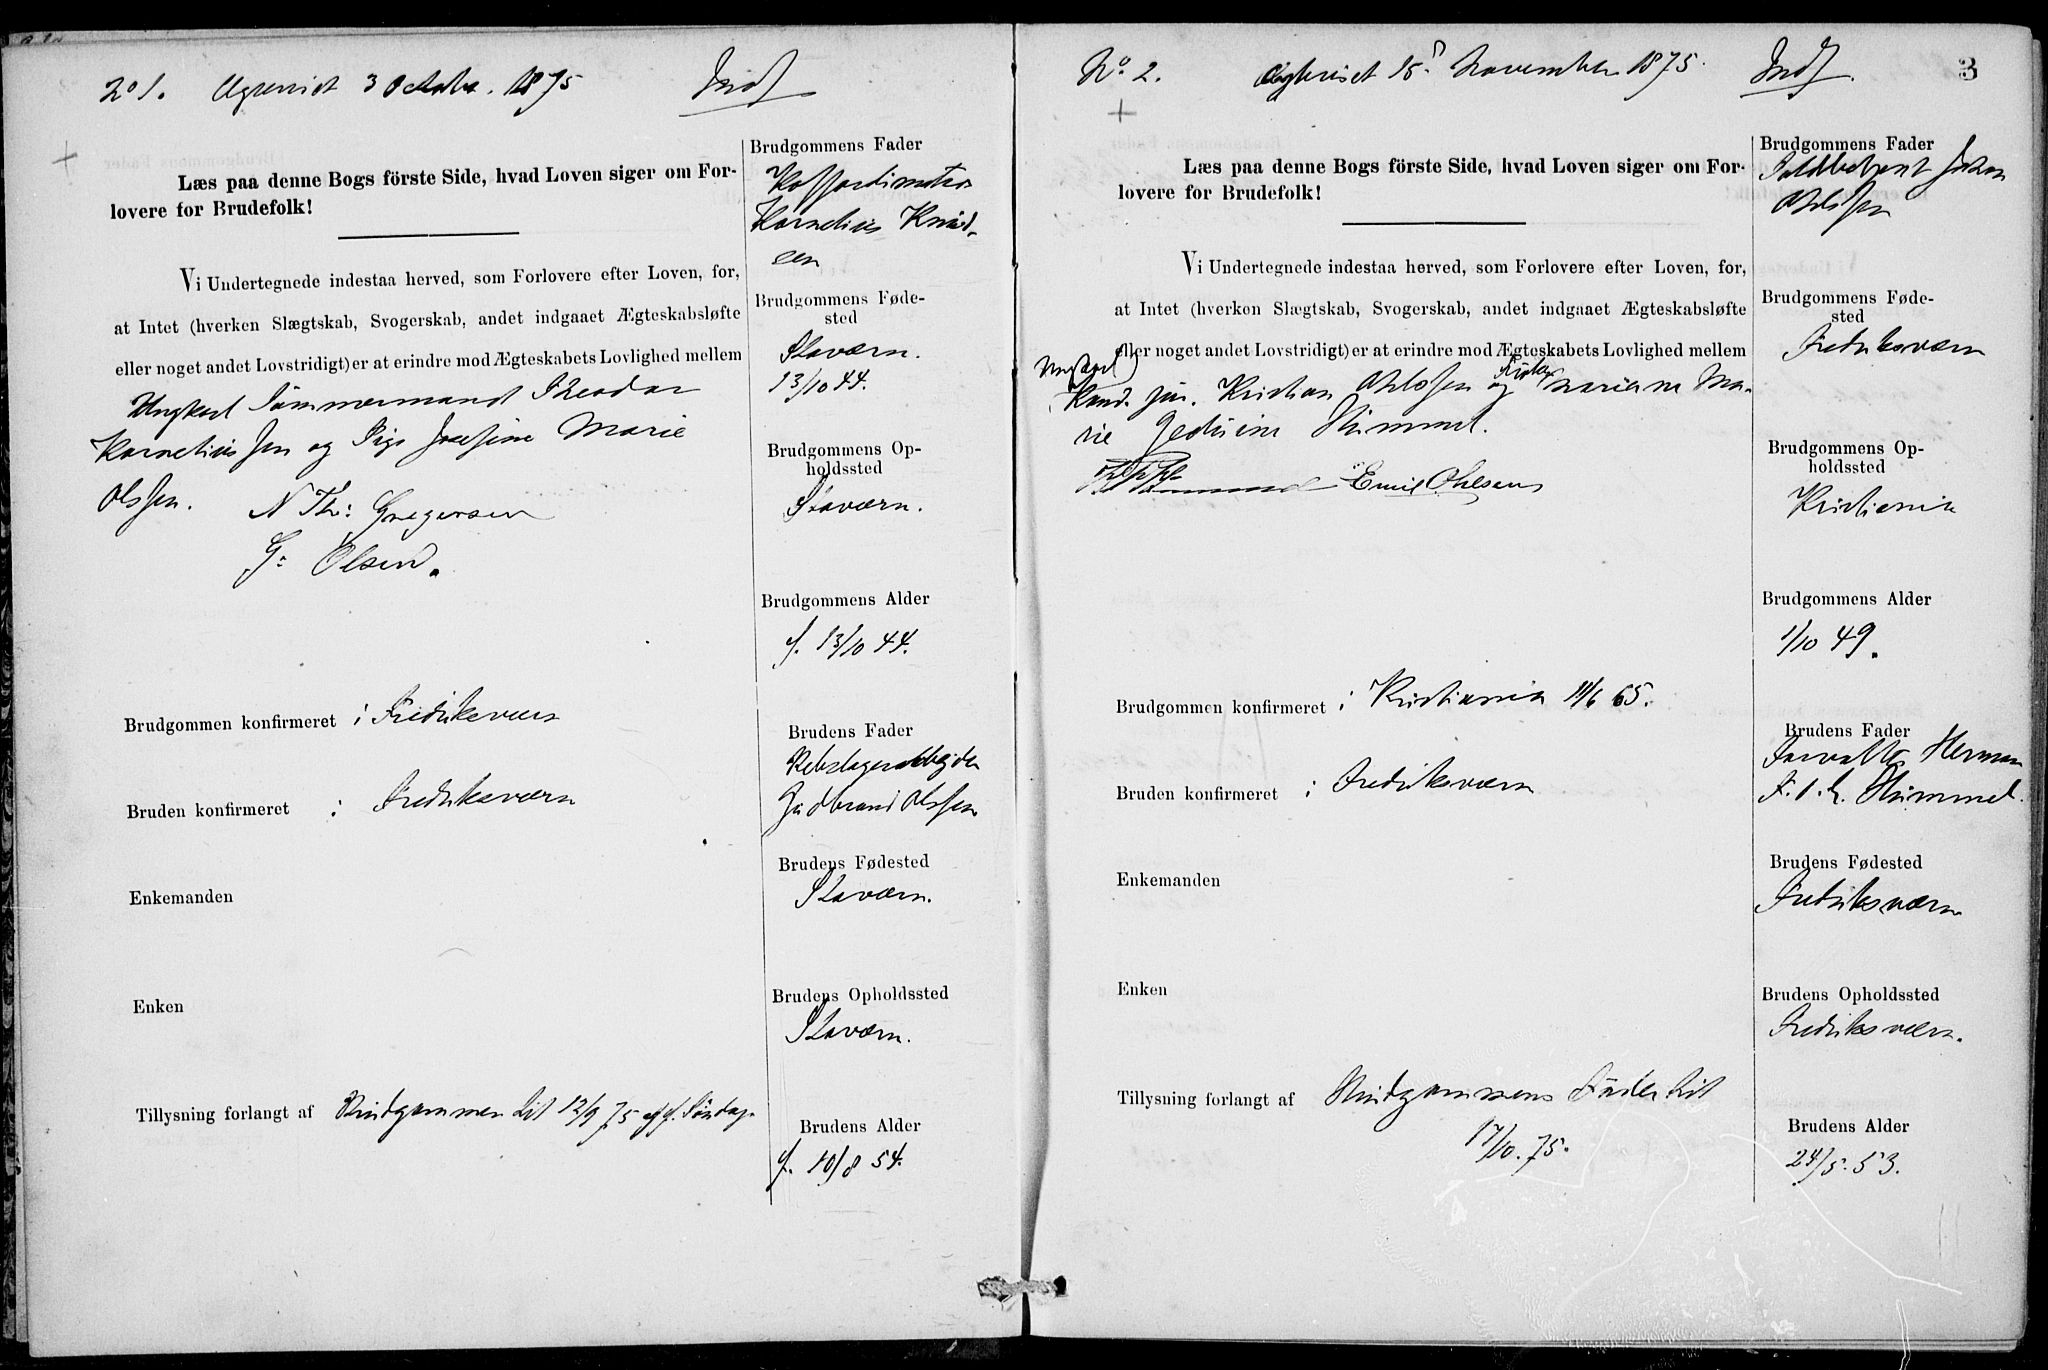 No 1. 3 October. 1875 Indf
Læs paa denne Bogs förste Side, hvad Loven siger om For-
lovere for Brudefolk!
Vi Undertegnede indestaa herved, som Forlovere efter Loven, for,
at Intet (hverken Slægtskab, Svogerskab, andet indgaaet Ægteskabsløfte
eller noget andet Lovstridigt) er at erindre mod Ægteskabets Lovlighed mellem
Ungkarl Tømmermand Theodor
Korneliussen og Pige Josefine Marie
Olssen.
N Th: Gregersen
G: Olsen.
Brudgommen konfirmeret i Fredriksværn
Bruden konfirmeret i Fredriksværn
Enkemanden
Enken
Tillysning forlangt af Brudgommen dit 12/9 75 Søndag
Brudgommens Fader
Kofferdimatros
Kornelius Knud-
sen
Brudgommens Føde-
sted
Staværn.
13/10 44.
Brudgommens Op-
holdssted
Staværn.
Brudgommens Alder
f. 13/10 44.
Brudens Fader
Rebslagerarbejder
Gudbrand Olssen
Brudens Fødested
Staværn.
Brudens Opholdssted
Staværn.
Brudens Alder
f. 10/8 54.
No. 2. November 1875. Indf. 3
Læs paa denne Bogs förste Side, hvad Loven siger om For-
lovere for Brudefolk!
Vi Undertegnede indestaa herved, som Forlovere efter Loven, for,
at Intet (hverken Slægtskab, Svogerskab, andet indgaaet Ægteskabsløfte
eller noget andet Lovstridigt) er at erindre mod Ægteskabets Lovlighed mellem
Ungkarl
Kand. jur. Kristian Ohlssen og Mariane Ma-
rie Hummel.
Emil Ohlsen
Brudgommen konfirmeret i Kristiania 11/6 65.
Bruden konfirmeret i Fredriksværn
Enkemanden
Enken
Tillysning forlangt af Brudgommens Fader dit
17/10. 75.
Brudgommens Fader
Johan
Ohlssen
Brudgommens Føde-
sted
Fredriksværn
Brudgommens Op-
holdssted
Kristiania
Brudgommens Alder
1/10 49.
Brudens Fader
Forvalter Herman
Hummel.
Brudens Fødested
Fredriksværn
Brudens Opholdssted
Fredriksværn.
Brudens Alder
24/5. 53.